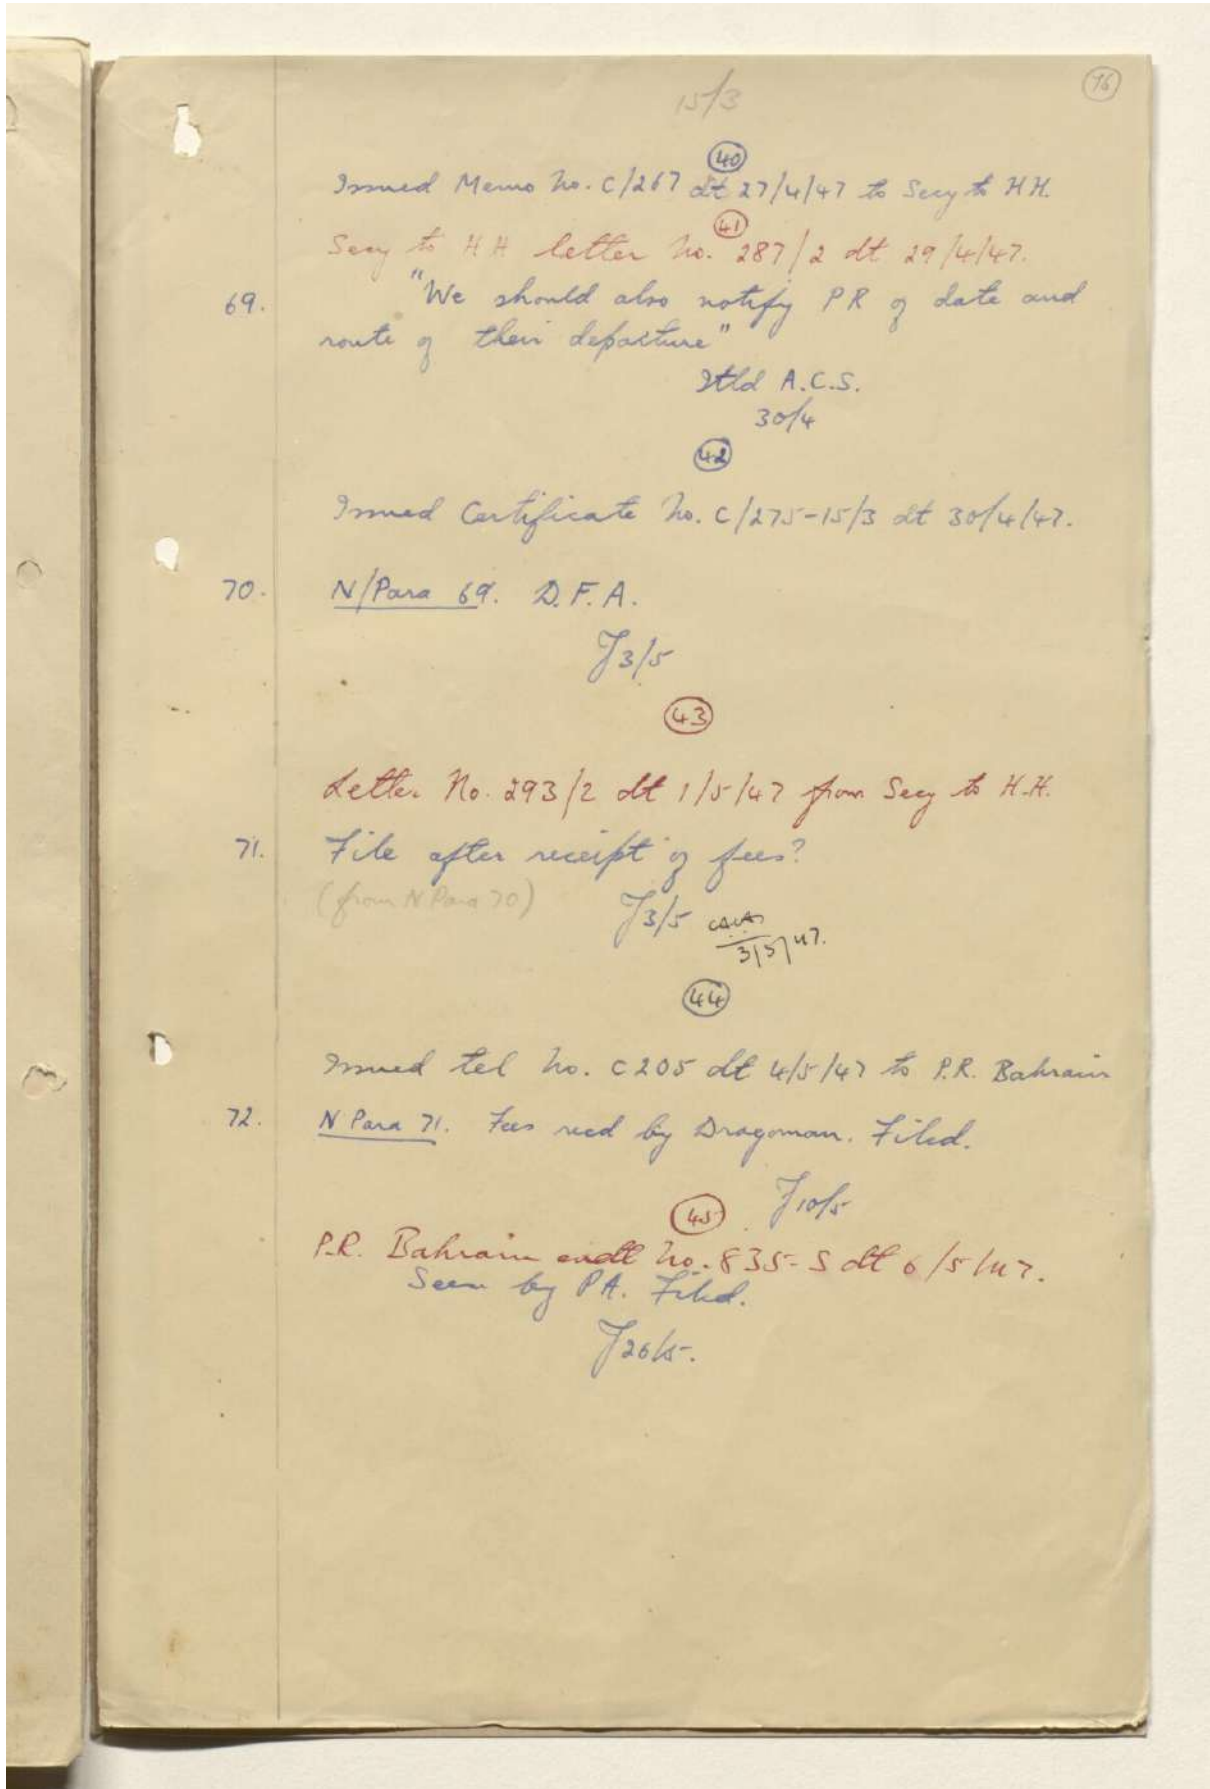 76
15/3
40
Issued Memo No. C/267 dt 27/4/47 to Secy to HH.
41
Secy to HH letter No. 287/2 dt 29/4/47.
69. "We should also notify PR of date and
route of their departure"
Itld A.C.S.
30/4
42
Issued Certificate No. C/275-15/3 dt 30/4/47.
70. N/Para 69. D.F.A.
J 3/5
43
Letter No. 293/2 dt 1/5/47 from Secy to H.H.
71. File after receipt of fees?
(from N Para 70)
J 3/5
3/5/47.
44
Issued tel No. C205 dt 4/5/47 to P.R. Bahrain
72. N Para 71. Fees recd by Dragoman. Filed.
J 10/5
45
P.R. Bahrain endt No. 835-S dt 6/5/47.
Seen by PA. Filed.
J 26/5.